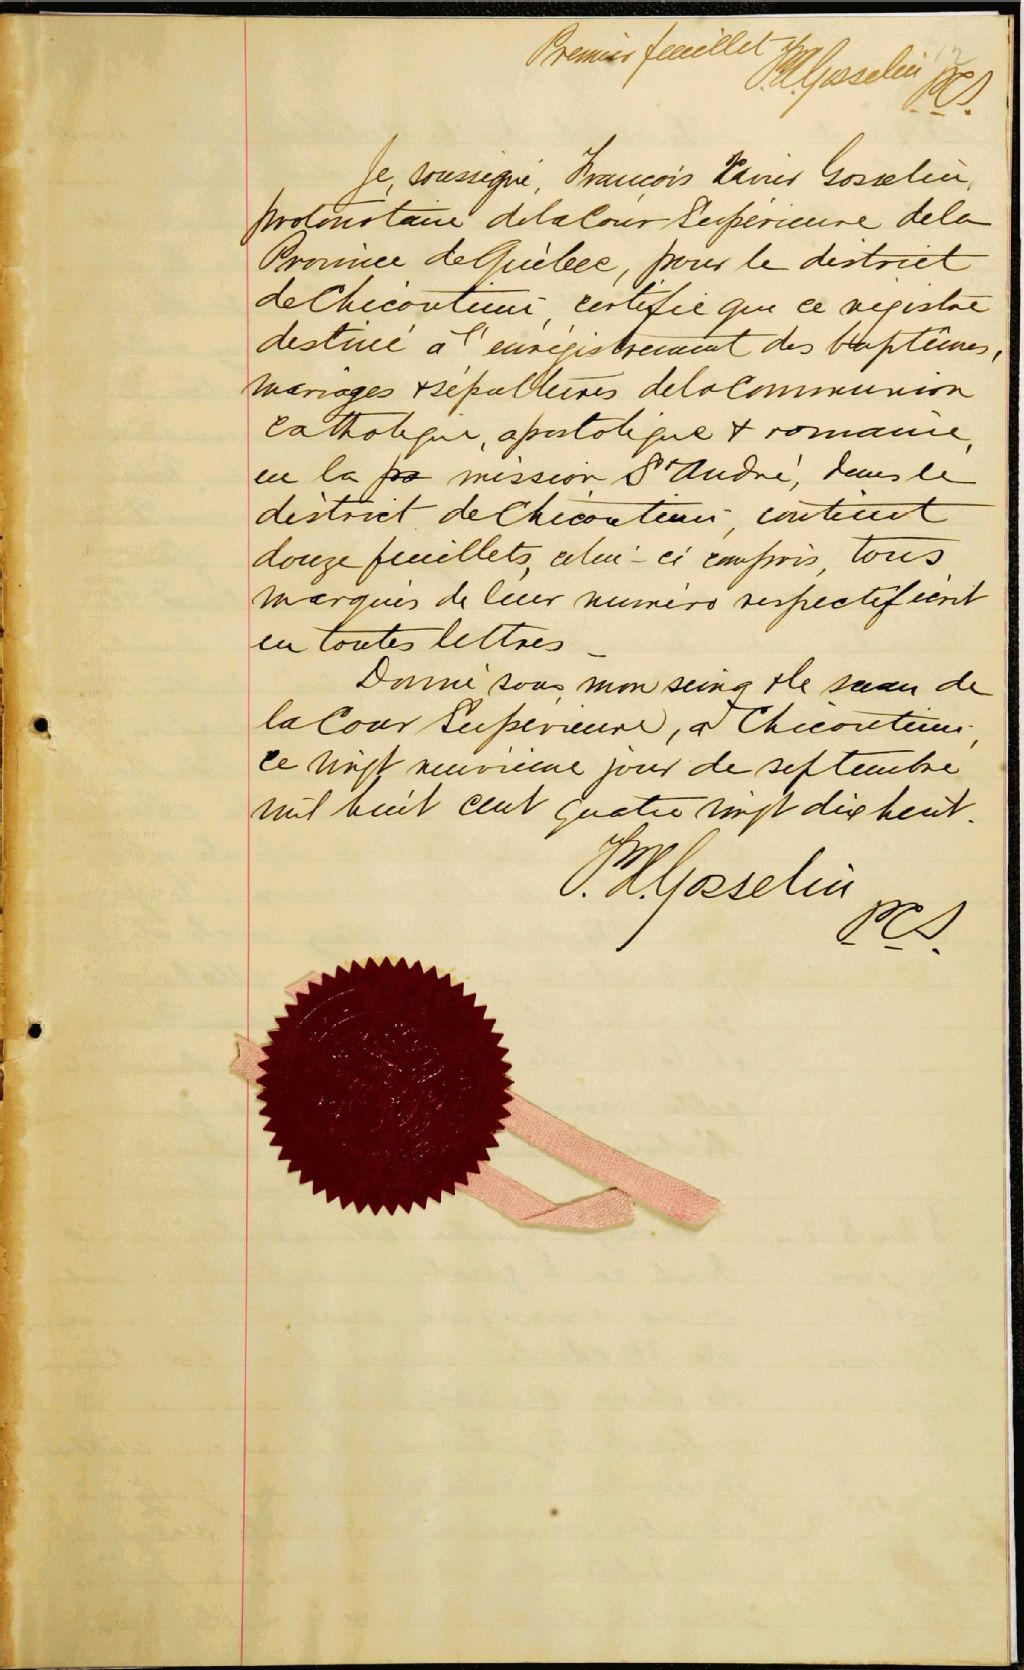 Premier feuillet
F. X. Gosselin
P.C.S.
Je, soussigné, François Xavier Gosselin,
protonotaire de la Cour Supérieure de la
Province de Québec, pour le district
de Chicoutimi, certifie que ce régistre
destiné à l'enrégistrement des baptêmes,
mariages & sépultures de la Communion
catholique, apostolique & romaine,
en la mission St André, dans le
district de Chicoutimi, contient
douze feuillets, celui-ci compris, tous
marqués de leur numéro respectif écrit
en toutes lettres _
Donné sous mon seing & le sceau de
la Cour Supérieure, à Chicoutimi,
ce vingt neuvième jour de septembre
mil huit cent quatre vingt dix huit.
F. X. Gosselin
P.C.S.